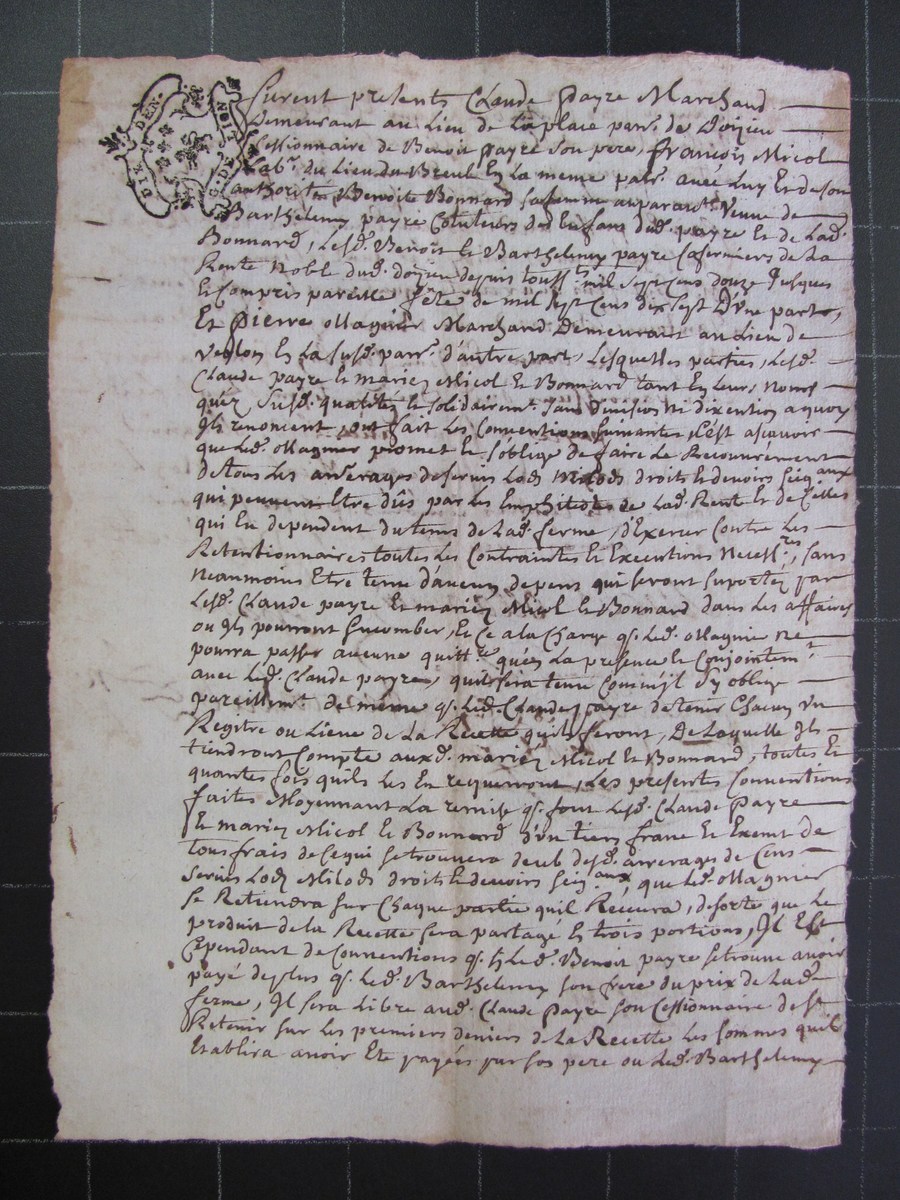 DIX DEN.
G. DE LION
furent presents Claude payre Marchand
Demeurant au Lieu de Laplace parr. de Doyieu
Cessionnaire de Benoit payre son pere, françois Nicol
Lab.r du Lieu du Breul En la meme parr. avec Luy Et de son
authorité Benoite Bonnard sa femme auparav.t Veuve de
Barthelemy payre Cotuteurs des Enfans dud. payre Et de Lad.
Bonnard, Lesd. Benoit Et Barthelemy payre Cofermiers de La
Rente Noble dud. doyieu depuis touss.ts mil sept cens douze Jusques
Et Compris pareille fête de mil sept cens dix sept D'Une part,
Et pierre Magnier Marchand Demeurant au Lieu de
En La susd. parr. d'autre part, Lesquelles parties, Lesd.
Claude payre Et mariez Nicol Et Bonnard tant En Leurs Noms
quez susd. qualitez Et solidairem.t sans Division Ni dixention a quoy
Ils renoncent, ont fait Les Conventions suivantes, C'est ascavoir
que Led. Magnier promet Et s'oblige de faire Le Recouvrement
de tous Les arrerages de servis Lods Milods droits Et devoirs seig.aux
qui peuvent Etre dûs par Les Emphiteotes de Lad. Rente Et de Celles
qui En dependent du tems de Lad. ferme, d'Exercer Contre Les
Retentionnaires toutes Les Contraintes Et Executions Necess.res, sans
Neanmoins Etre tenu d'aucun depens qui seront suportez par
Lesd. Claude payre Et mariez Nicol Et Bonnard dans Les affaires
ou Ils pourront sucomber, Et Ce a la Charge q. Led. Magnier Ne
pourra passer aucune quitt.ce qu'en La presence Et Conjointem.t
avec Led. Claude payre, quil sera tenu Comme il s'y oblige
pareillem.t de même q. Led. Claude payre de tenir Chacun un
Registre ou Lieve de La Recette quils feront, De Laquelle Ils
tiendront Compte auxd. mariez Nicol Et Bonnard, toutes Et
quantes fois quils Les En requerront, Les presentes Conventions
faites Moyennant La remise q. font Lesd. Claude payre
Et mariez Nicol Et Bonnard d'un tiers franc Et Exemt de
tous frais de Ce qui se trouvera deub desd. arrerages de Cens
servis Lods Milods droits Et devoirs seig.aux, que Led. Magnier
se Retiendra sur Chaque partie quil Recevra, de sorte que Le
produit de La Recette sera partagé En trois portions, Il Est
Cependant de Conventions q. si Led. Benoit payre se trouve avoir
payé de plus q. Led. Barthelemy son frere du prix de Lad.
ferme, Il sera Libre aud. Claude payre son Cessionnaire de se
Retenir sur Les premiers deniers de La Recette Les sommes quil
Etablira avoir Eté payées par son pere ou Led. Barthelemy